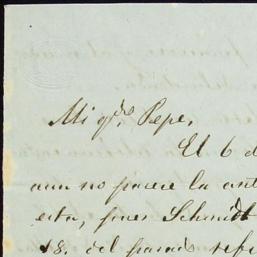 Mi qdo. Pepe,
El 6 d
aun no parece la ant
esta, pues Schmidt
18. del pasado refe